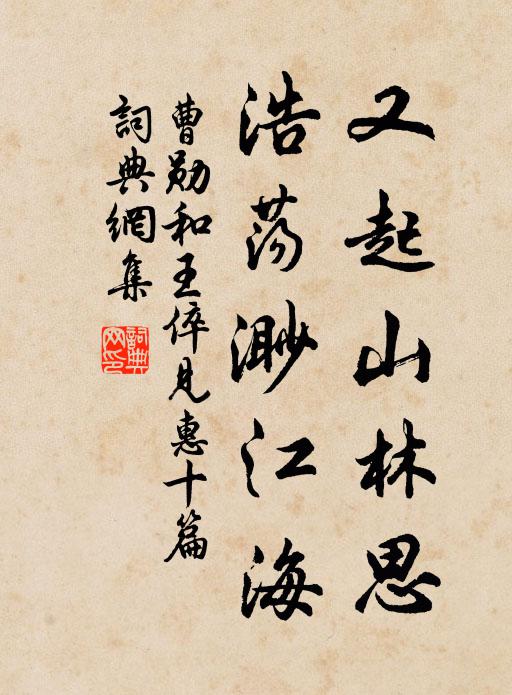 又起山林思
浩荡渺江海
曹勋和王倅見惠十篇
詞典網集
詞典網印